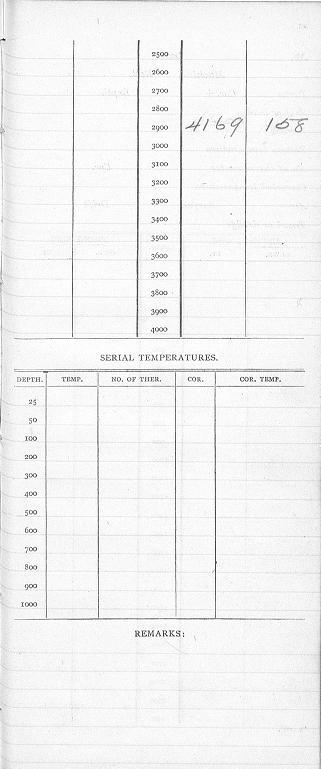 2500
2600
2700
2800
2900 4169 158
3000
3100
3200
3300
3400
3500
3600
3700
3800
3900
4000
SERIAL TEMPERATURES.
DEPTH. TEMP. NO. OF THER. COR. COR. TEMP.
25
50
100
200
300
400
500
600
700
800
900
1000
REMARKS: